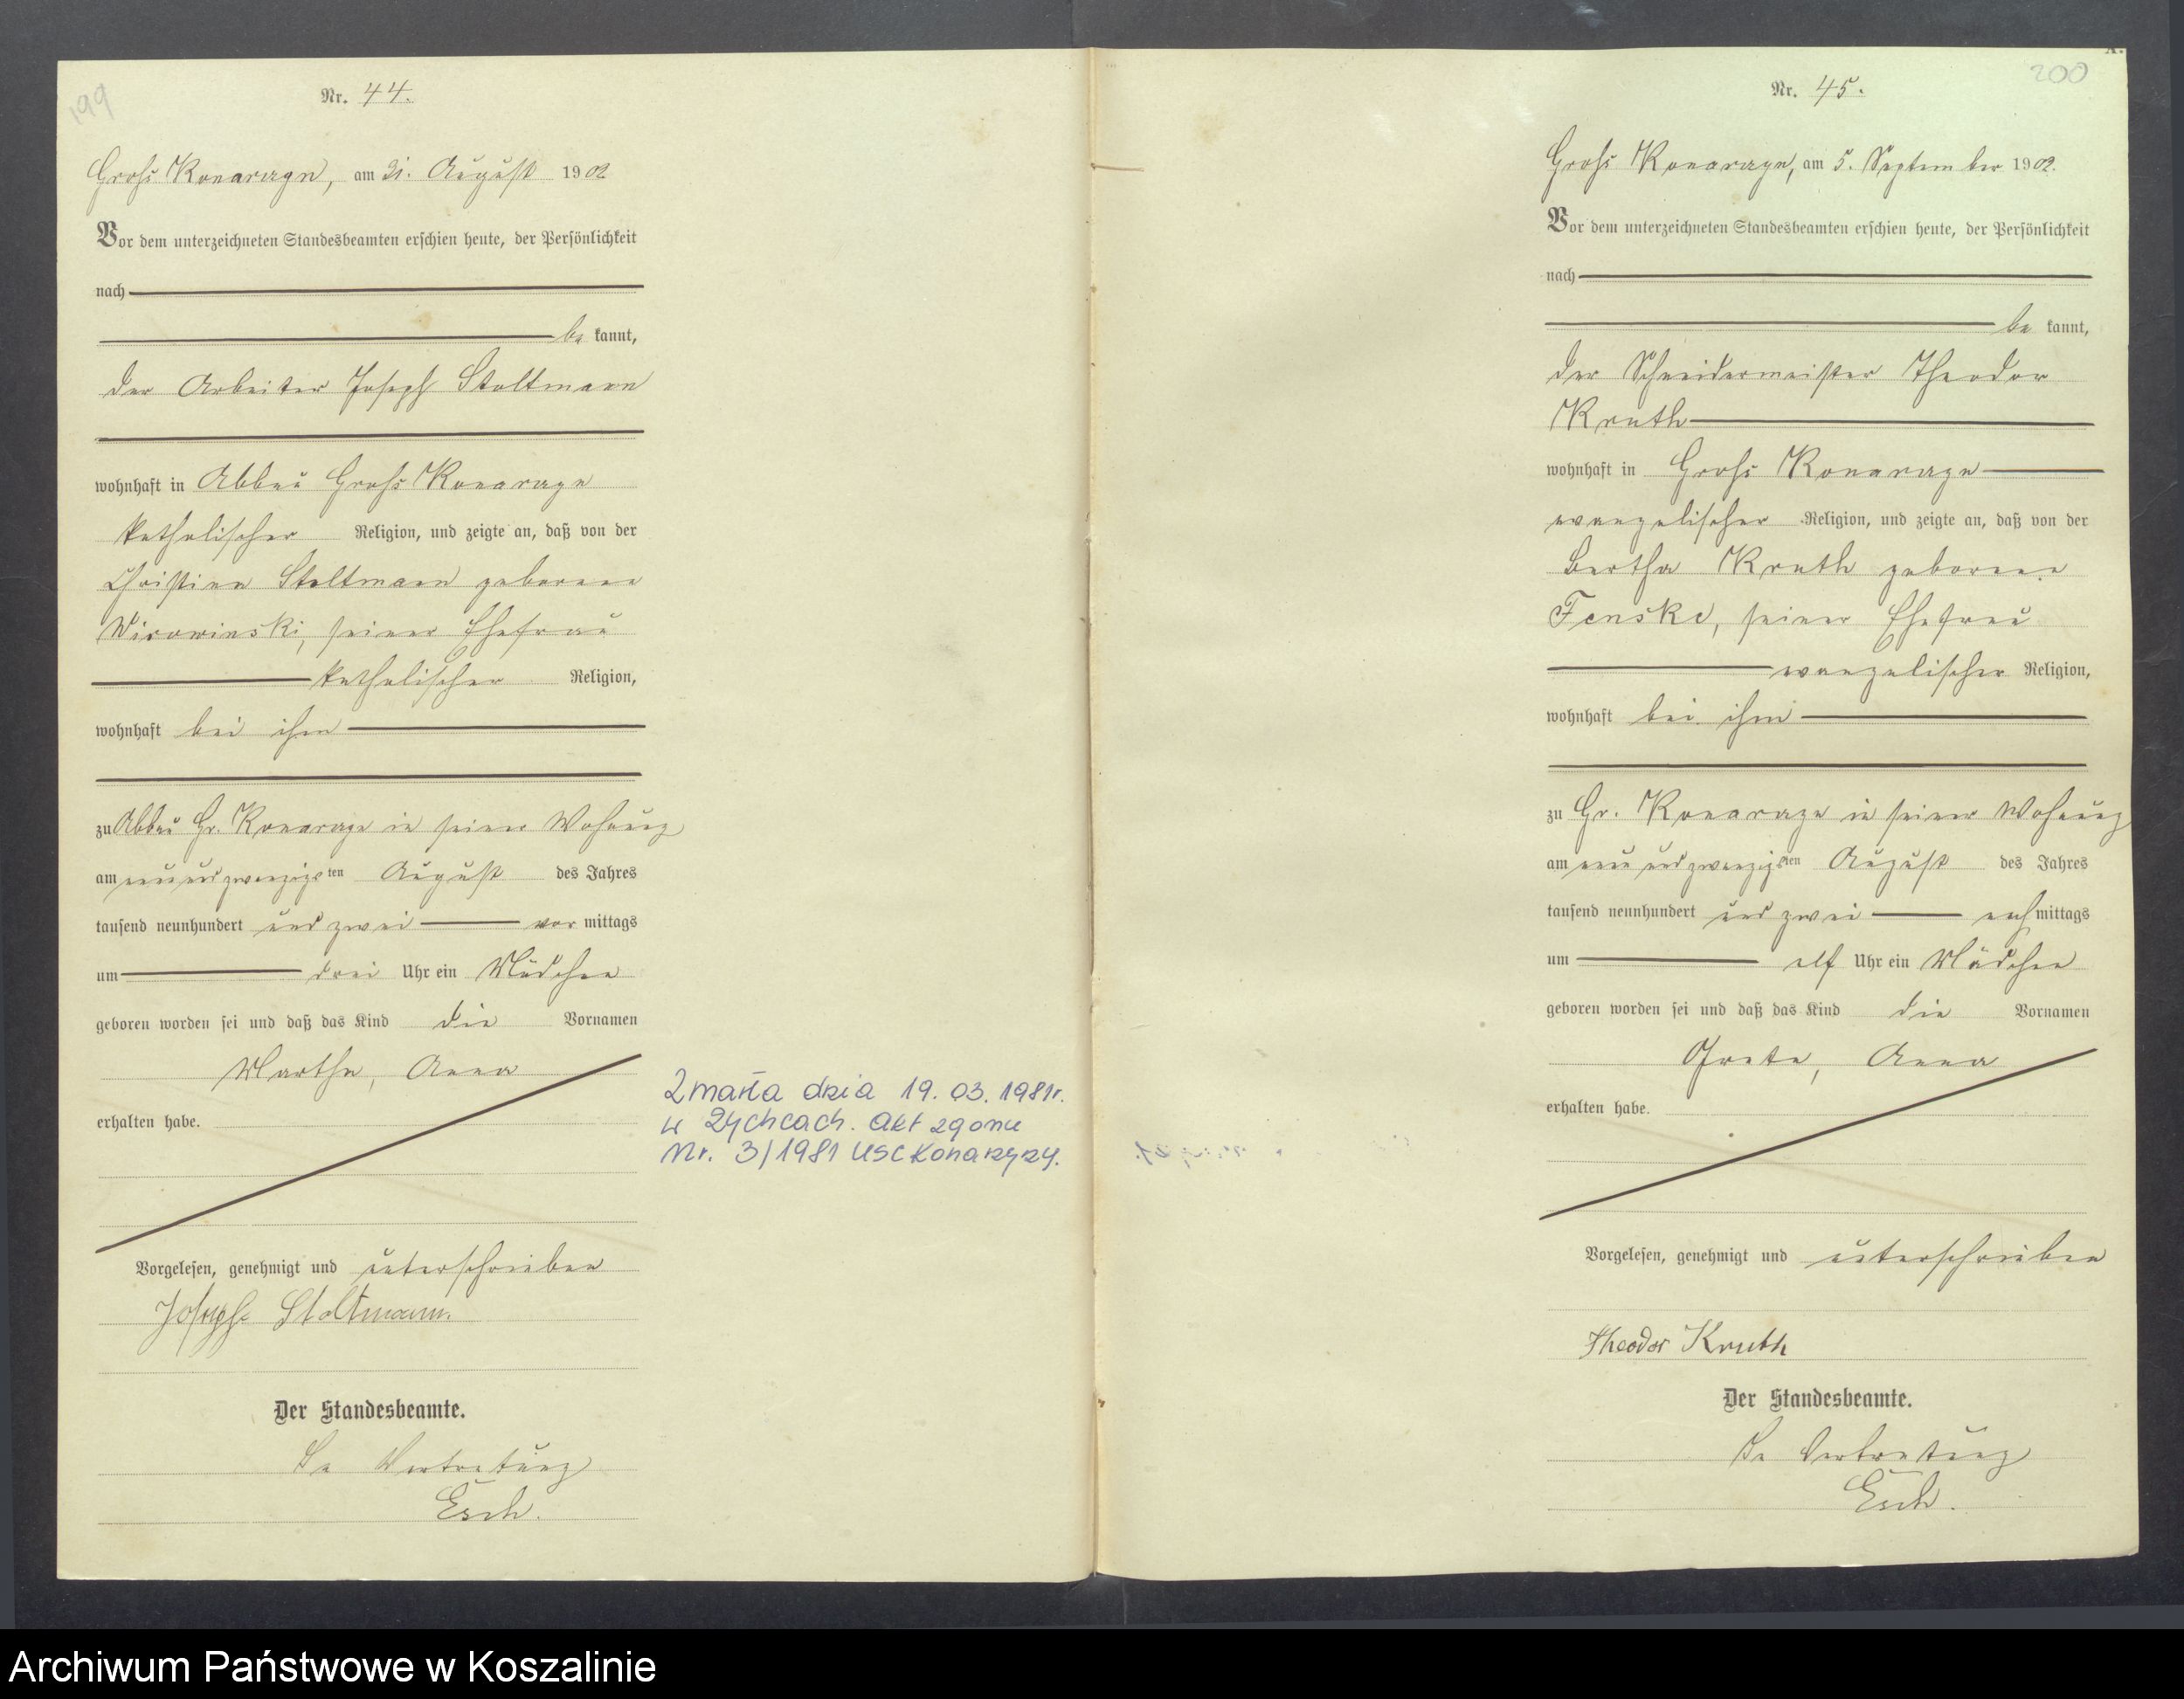 199
Nr. 44.
Groß Konarzyn, am 31. August 1902
Vor dem unterzeichneten Standesbeamten erschien heute, der Persönlichkeit
nach
be kannt,
der Arbeiter Joseph Stoltmann
wohnhaft in Abbau Groß Konarzyn
katholischer Religion, und zeigte an, daß von der
Christine Stoltmann geborene
seiner Ehefrau
katholischer Religion,
wohnhaft bei ihm
zu Abbau Gr. Konarzyn in seiner Wohnung
am neun und zwanzigsten August des Jahres
tausend neunhundert und zwei vor mittags
um drei Uhr ein Mädchen
geboren worden sei und daß das Kind die Vornamen
Martha, Anna
erhalten habe.
Vorgelesen, genehmigt und unterschrieben
Joseph Stoltmann.
Der Standesbeamte.
In Vertretung
Esch.
Zmarła dnia 19.03.1981r.
w Zychcach. Akt zgonu
Nr. 3/1981 USC Konarzyny.
200
Nr. 45.
Groß Konarzyn, am 5. September 1902.
Vor dem unterzeichneten Standesbeamten erschien heute, der Persönlichkeit
nach
be kannt,
der Schneidermeister Theodor
Kruth
wohnhaft in Groß Konarzyn
evangelischer Religion, und zeigte an, daß von der
Bertha Kruth geborene
Fenske, seiner Ehefrau
evangelischer Religion,
wohnhaft bei ihm
zu Gr. Konarzyn in seiner Wohnung
am neun und zwanzigsten August des Jahres
tausend neunhundert und zwei nach mittags
um elf Uhr ein Mädchen
geboren worden sei und daß das Kind die Vornamen
Grete, Anna
erhalten habe.
Vorgelesen, genehmigt und unterschrieben
Theodor Kruth
Der Standesbeamte.
In Vertretung
Esch.
Archiwum Państwowe w Koszalinie